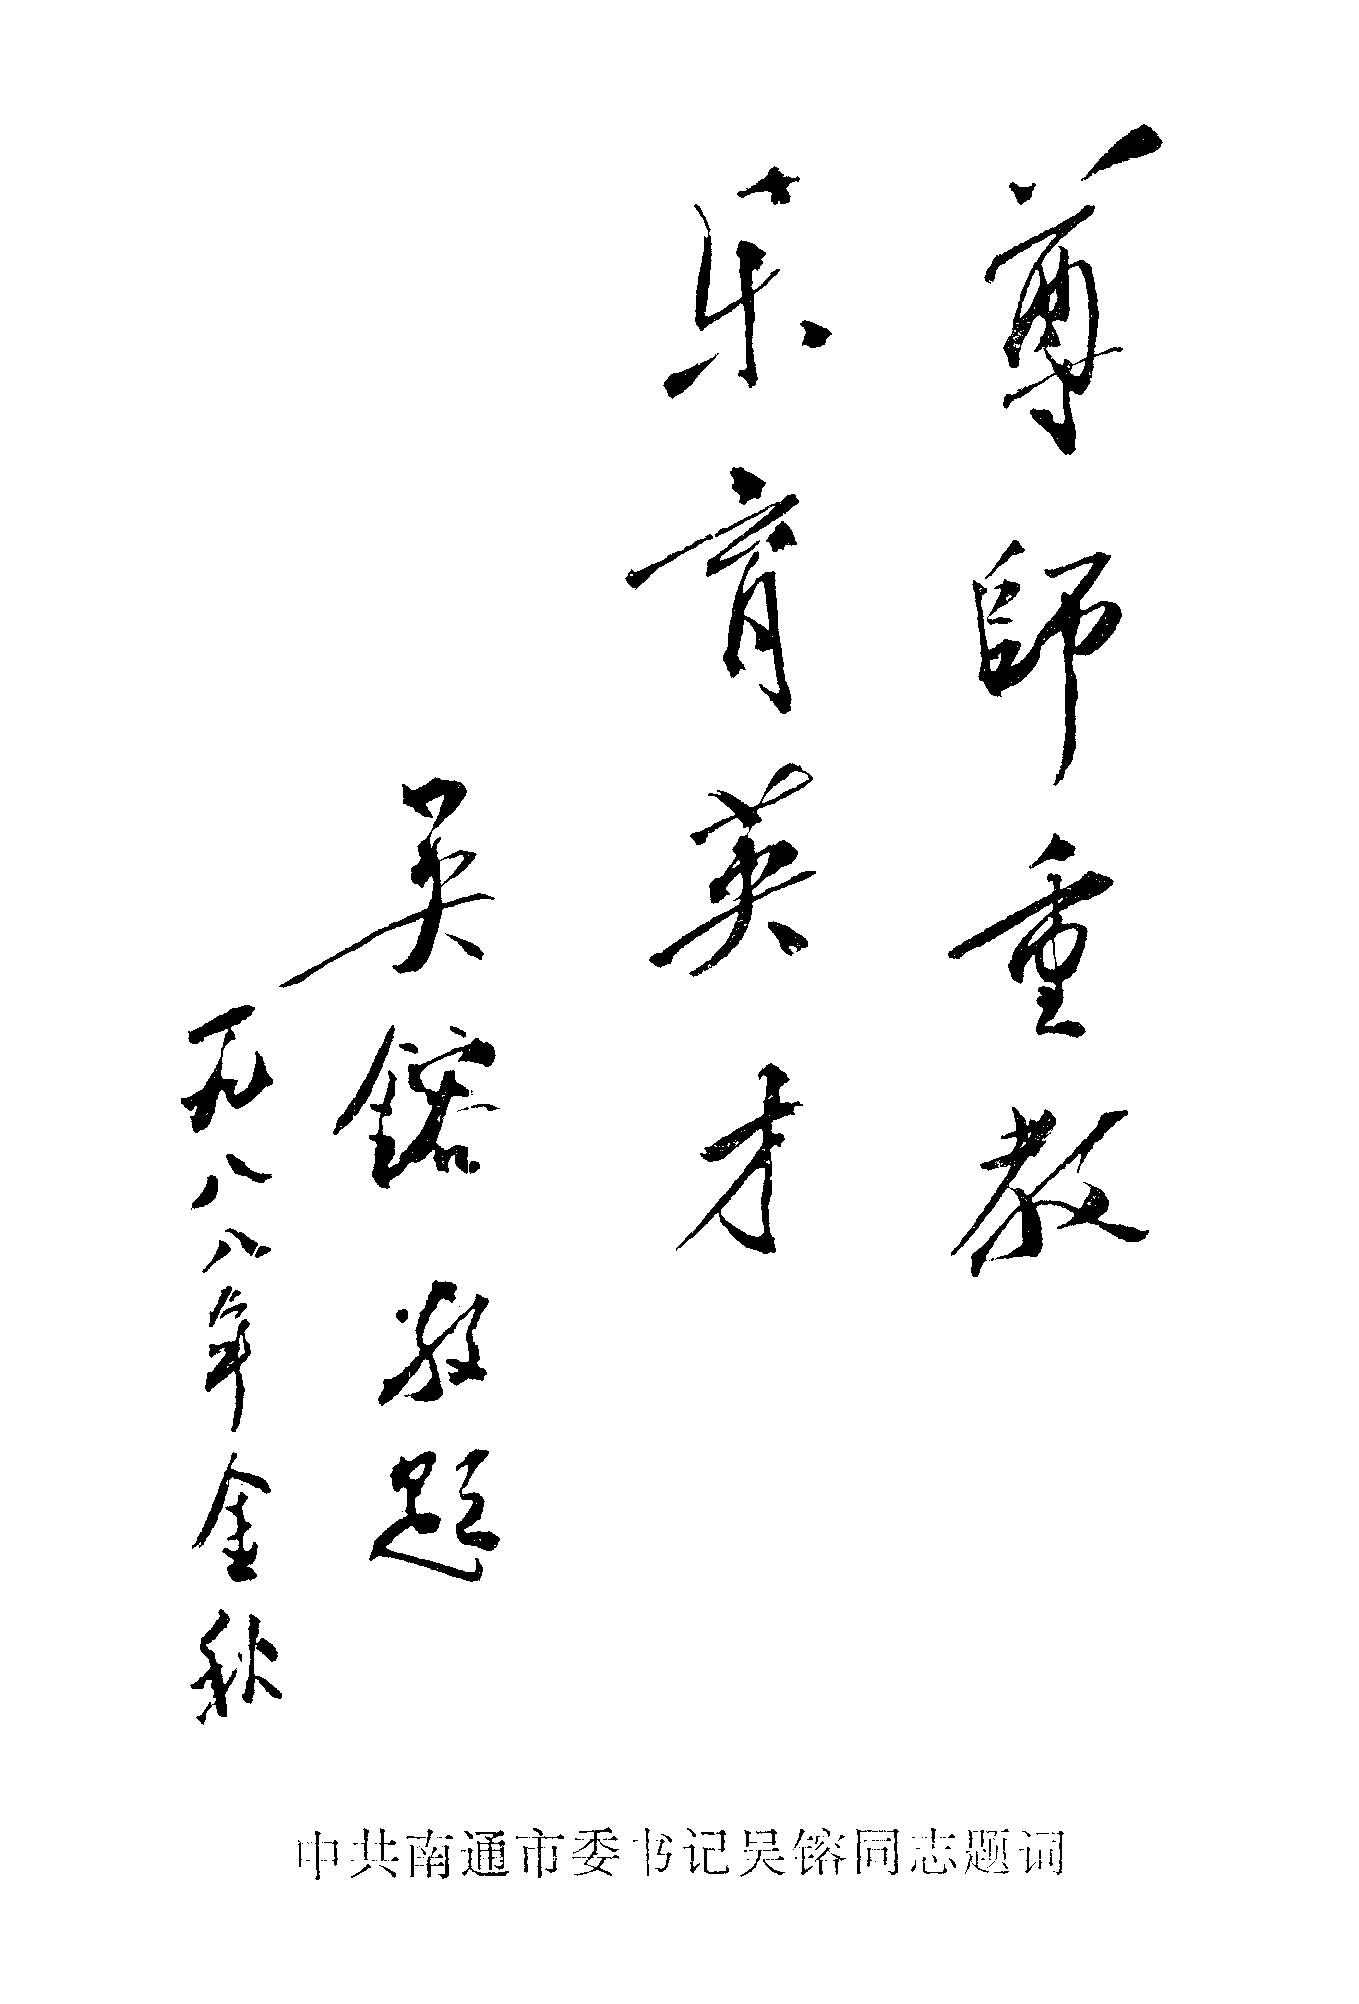 尊師重教
乐育英才
吴鎔敬题
一九八八年金秋
中共南通市委书记吴镕同志题词